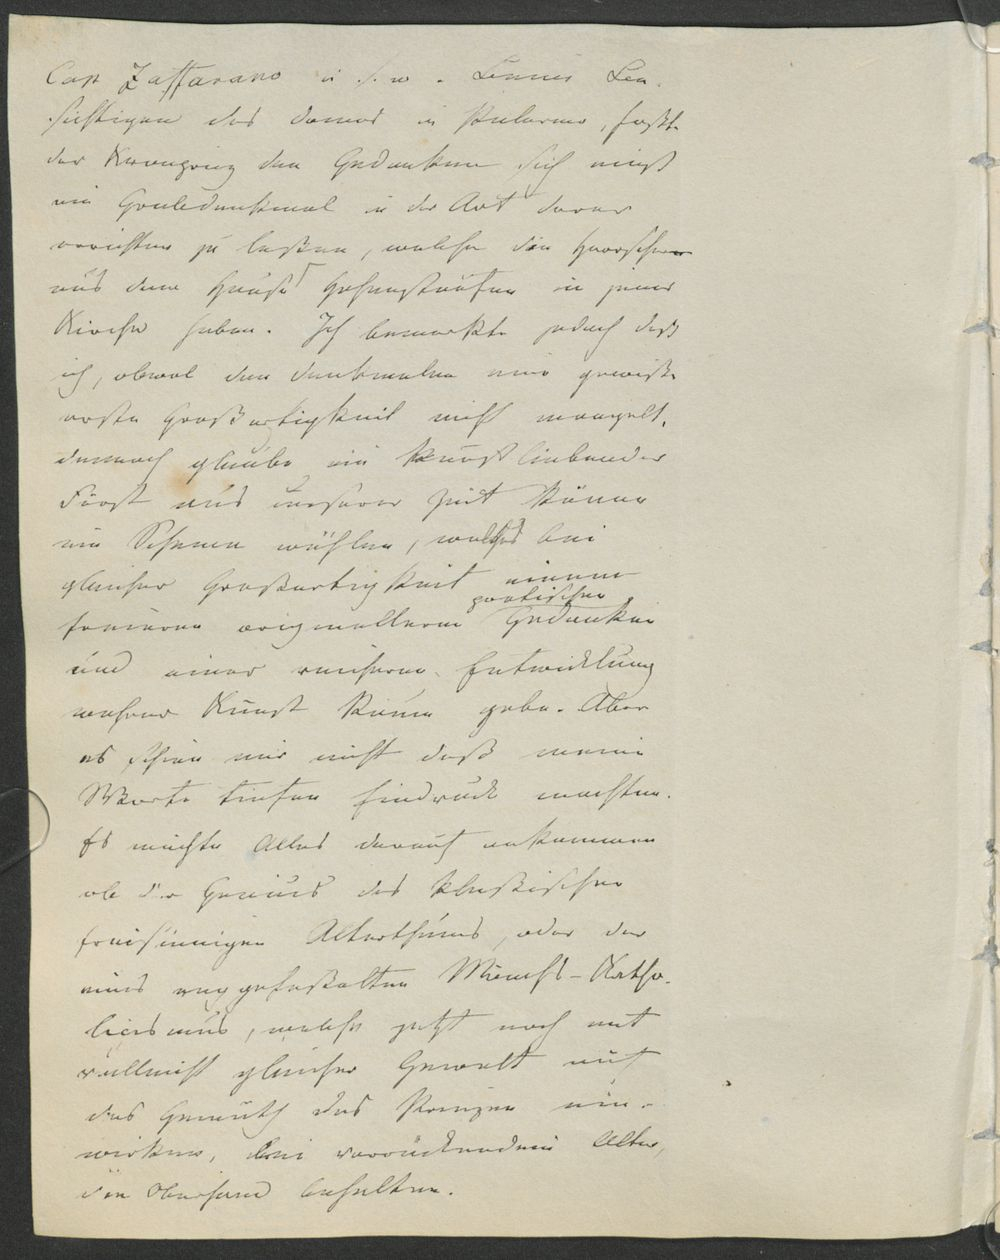 Cap Zaffarano u. s. w. Beim Be-
sichtigen des Domes in Palermo, faßte
der Kronprinz den Gedanken sich einst
ein Grabdenkmal in der Art derer
errichten zu laßen, welche die Herrscher
aus dem Hause Hohenstaufen in jener
Kirche haben. Ich bemerkte jedoch daß
ich, obwol den Denkmalen eine gewiße
erste Großartigkeit nicht mangelt,
dennoch glaube ein kunstliebender
Fürst aus unserer Zeit könne
ein Schema wählen, welches bei
gleicher Großartigkeit einem
poetischen
feineren originellerem Gedanken
und einer reicheren Entwicklung
wahrer Kunst Raum gebe. Aber
es schien mir nicht daß meine
Worte tiefen Eindruck machten.
Es möchte Alles darauf ankommen
ob der Genius des klaßischen
freisinnigen Alterthums, oder der
eines enggefaßten Mönchs-Katho-
licismus, welche jetzt noch mit
vielleicht gleicher Gewalt auf
das Gemüth des Prinzen ein-
wirken, bei vorrückendem Alter,
die Oberhand behalten.